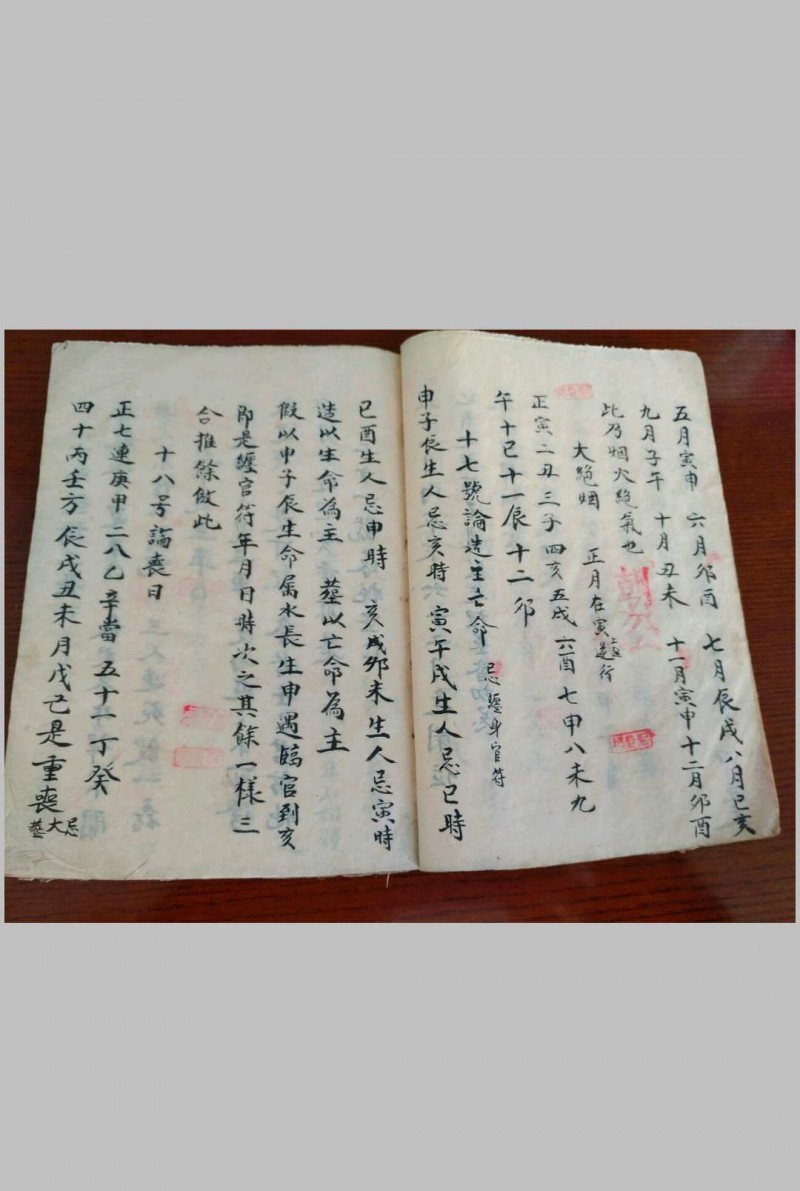 五月寅申 六月卯酉 七月辰戌 八月巳亥
九月子午 十月丑未 十一月寅申 十二月卯酉
此乃烟火絶氣也
大絶烟 正月在寅逆行
正寅二丑三子四亥五戌六酉七申八未九
午十巳十一辰十二卯
十七號論造主亡命 忌纏身官符
申子辰生人忌亥時 寅午戌生人忌巳時
巳酉生人忌申時 亥戌卯未生人忌寅時
造以生命為主 墓以亡命為主
假以申子辰生命属水長生申遇臨官到亥
即是纏官符年月日時次之其餘一樣三
合推餘倣此
十八号論喪日
正七連庚甲二八乙辛當五十一丁癸
四十丙壬方辰戌丑未月戊己是重喪 忌大墓